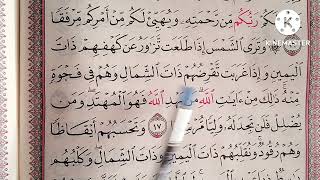 ربكم من رحمته ويهيئ لكم من أمركم مرفقا
وترى الشمس إذا طلعت تزور عن كهفهم ذات
اليمين وإذا غربت تقرضهم ذات الشمال وهم في فجوة
منه ذلك من ءايت الله من يهد الله فهو المهتد ومن
يضلل فلن تجد له وليا مرشدا ١٧ وتحسبهم أيقاظا
وهم رقود ونقلبهم ذات اليمين وذات الشمال وكلبهم
KINEMASTER